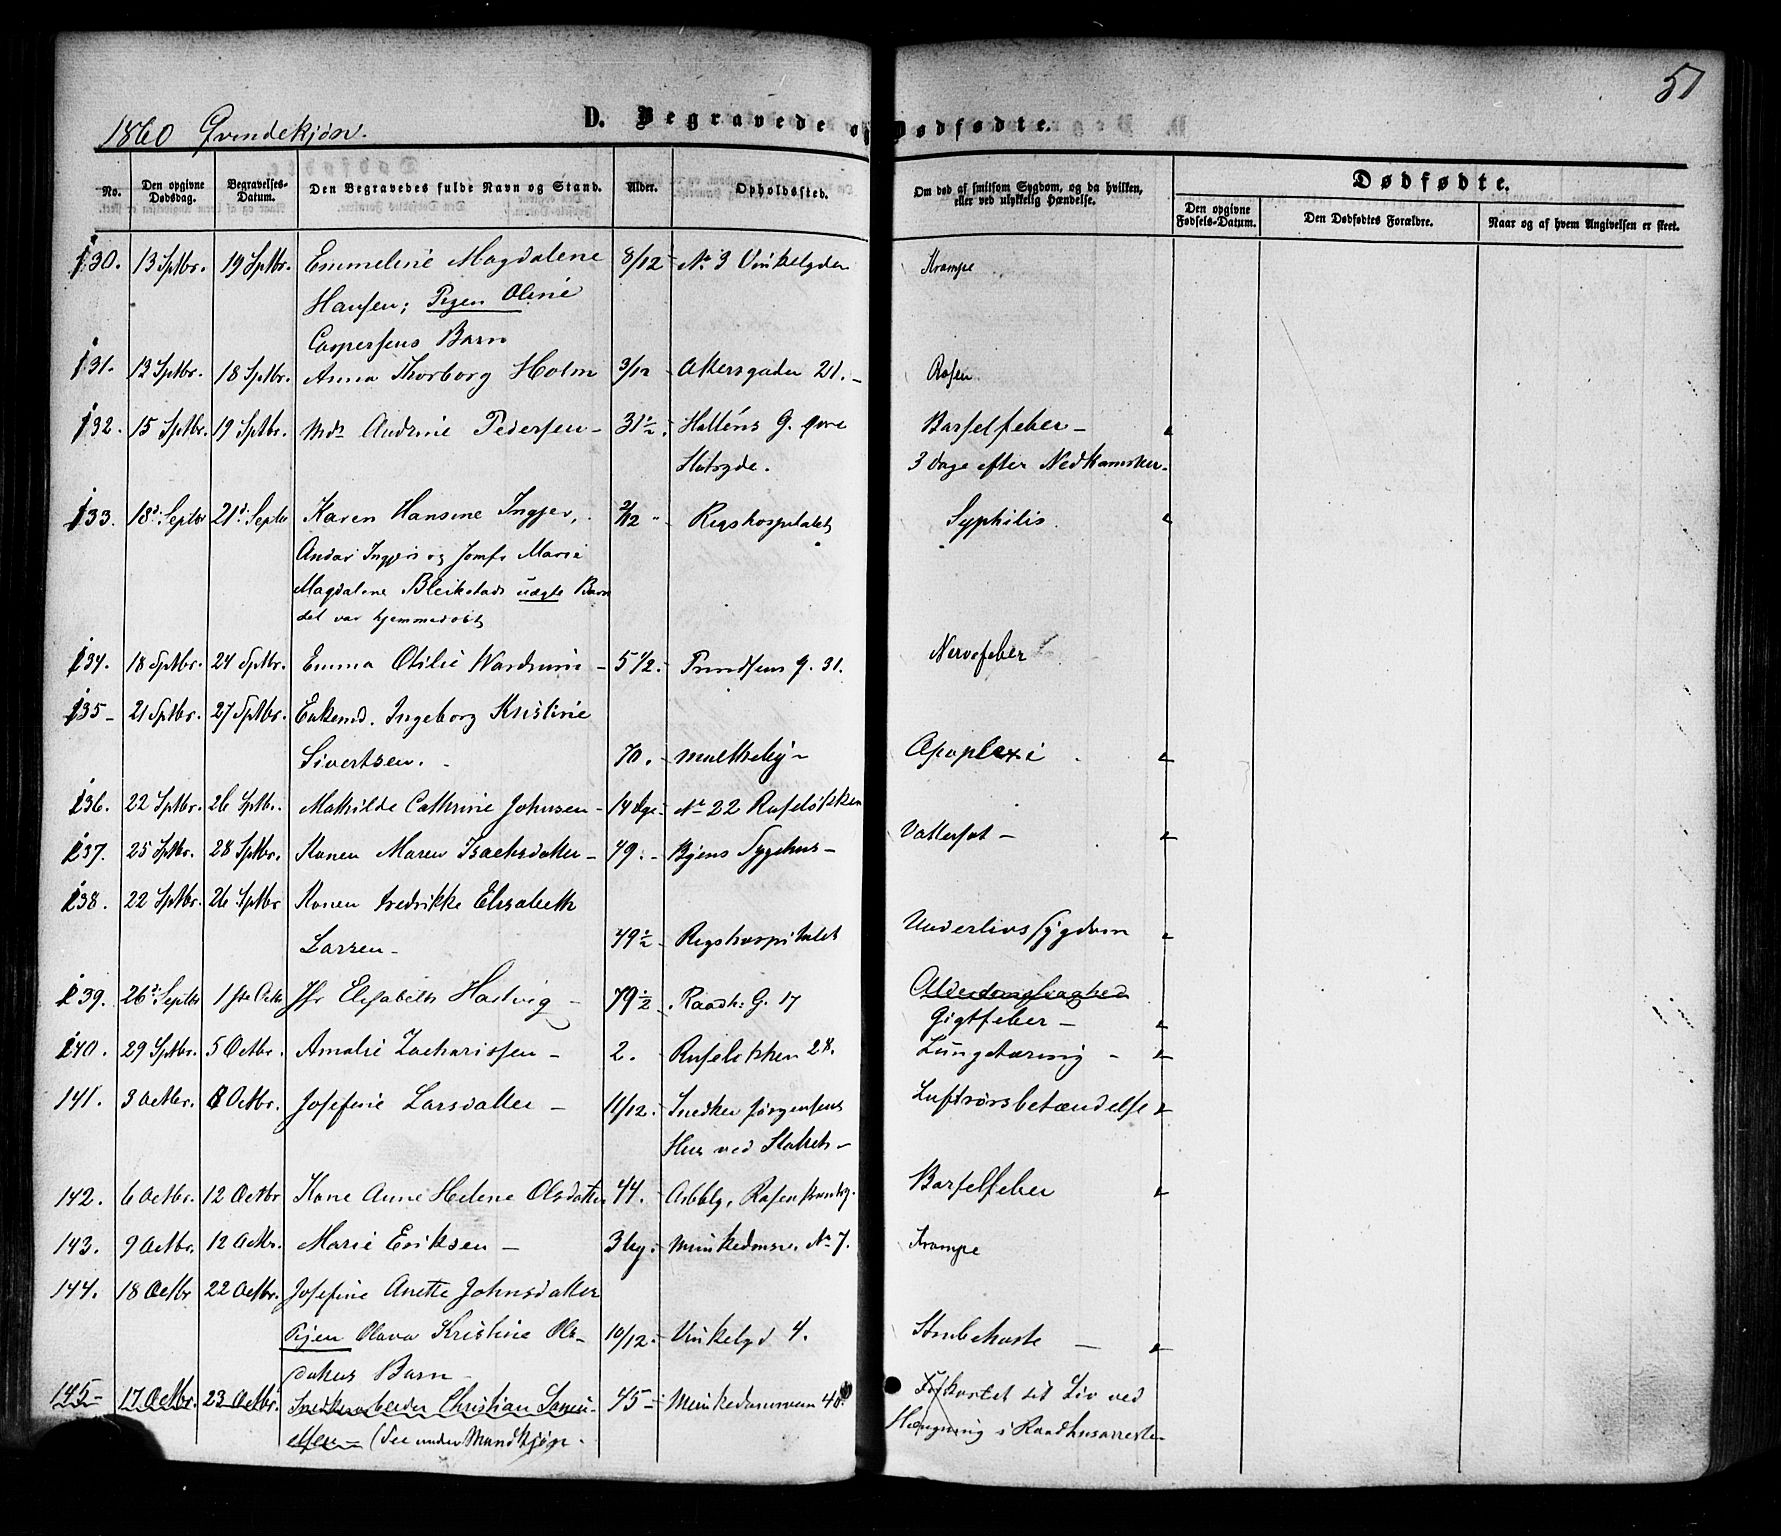 51
1860 Qvindekjøn.
D. Begravede og Dødfødte.
No.
Den opgivne Dødsdag.
Begravelses-Datum.
Den Begravedes fulde Navn og Stand.
Alder.
Opholdssted.
Om død af smitsom Sygdom, og da hvilken, eller ved ulykkelig Hændelse.
Dødfødte.
Den opgivne Fødsels-Datum.
Den Dødfødtes Forældre.
Naar og af hvem Angivelsen er skeet.
130. 13 Sptbr. 19 Sptbr. Emmeline Magdalene 8/12 No 3 Vinkelgden Krampe
Hansen; Pigen Oline
Caspersens Barn
131. 13 Sptbr. 18 Sptbr. Anna Thorborg Holm 3/12 Akersgaden 21. Rosen
132. 15 Sptbr. 19 Sptbr. Md. Andrine Pedersen 31 1/2. Holténs G. øvre Barselfeber
Slotsgde. 3 Dage efter Nedkomsten.
133. 18d Septbr 21d Septbr Karen Hansine Ingjer, 2/12 Rigshospitalet Syphilis.
Andar Ingjers og Jomfr Marie
Magdalene Bleikstads uægte Barn
det var hjemmedøbt
134. 18 Sptbr. 24 Sptbr. Emma Otilie Wardrum 5 1/2. G. 31. Nervefeber
135 21 Sptbr. 27 Sptbr. Enkemd. Ingeborg Kristine
Sivertsen. 70. Apoplexi
136. 22 Sptbr. 26 Sptbr. Mathilde Cathrine Johnsen 14 dge No 22 Ruseløkken
137. 25 Sptbr. 28 Sptbr. Konen Maren Isachsdatter 49. Byens Sygehus Vattersot
138. 22 Sptbr. 26 Sptbr Konen Fredrikke Elisabeth
Larsen 49 1/2 Rigshospitalet Underlivssygdom
139. 26d Septbr 1ste Octbr Jfr Elisabeth Hartvig 79 1/2. Raadh. G. 17 Alderdomssvaghed
Gigtfeber
140. 29 Sptbr. 5 Octbr. Amalie Zachariasen 2. Ruseløkken 28. Lungetæring
141. 3 Octbr. 8 Octbr. Josefine Larsdatter 11/12. Snedker Jørgensens Luftrørsbetændelse
Hus ved
142. 6 Octbr. 12 Octbr Kone Anne Helene Olsdatter 44. Barselfeber
143. 9 Octbr. 12 Octbr. Marie Eriksen Munkedamsv. No 7. Krampe
144. 18 Octbr 22 Octbr. Josefine Anette Johnsdatter
Pigen Olava Kristine Ols- 10/12. Vinkelgd 4. Strubehoste
datters Barn
145 17 Octbr. 23 Octbr. Christian Samu- 45 Munkedamsveien 40. Forkortet sit Liv ved
elsen (See under Mandkjøn. Hængning i Raadhusarresten